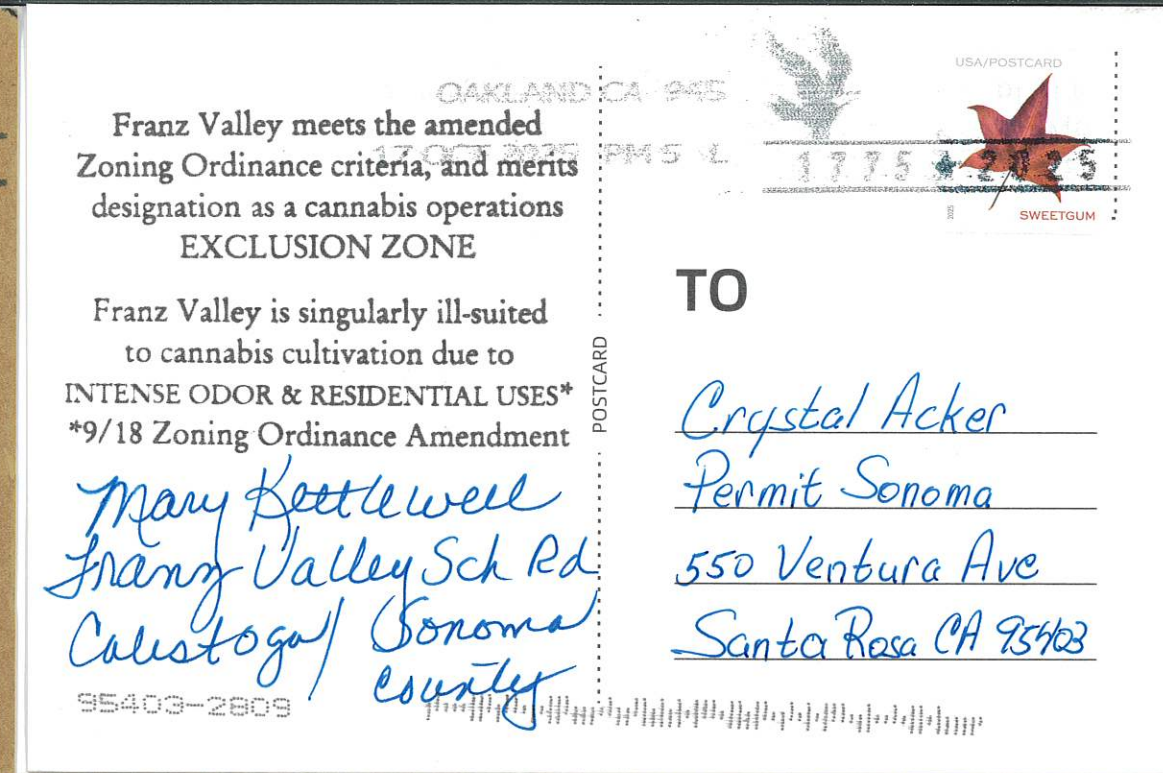 OAKLAND CA 945
17 OCT 2025 PM 5 L
USA/POSTCARD
2025
SWEETGUM
Franz Valley meets the amended
Zoning Ordinance criteria, and merits
designation as a cannabis operations
EXCLUSION ZONE
Franz Valley is singularly ill-suited
to cannabis cultivation due to
INTENSE ODOR & RESIDENTIAL USES*
*9/18 Zoning Ordinance Amendment
Mary Kettlewell
Franz Valley Sch Rd
Calistoga/ Sonoma
County
95403-2809
POSTCARD
TO
Crystal Acker
Permit Sonoma
550 Ventura Ave
Santa Rosa CA 95403